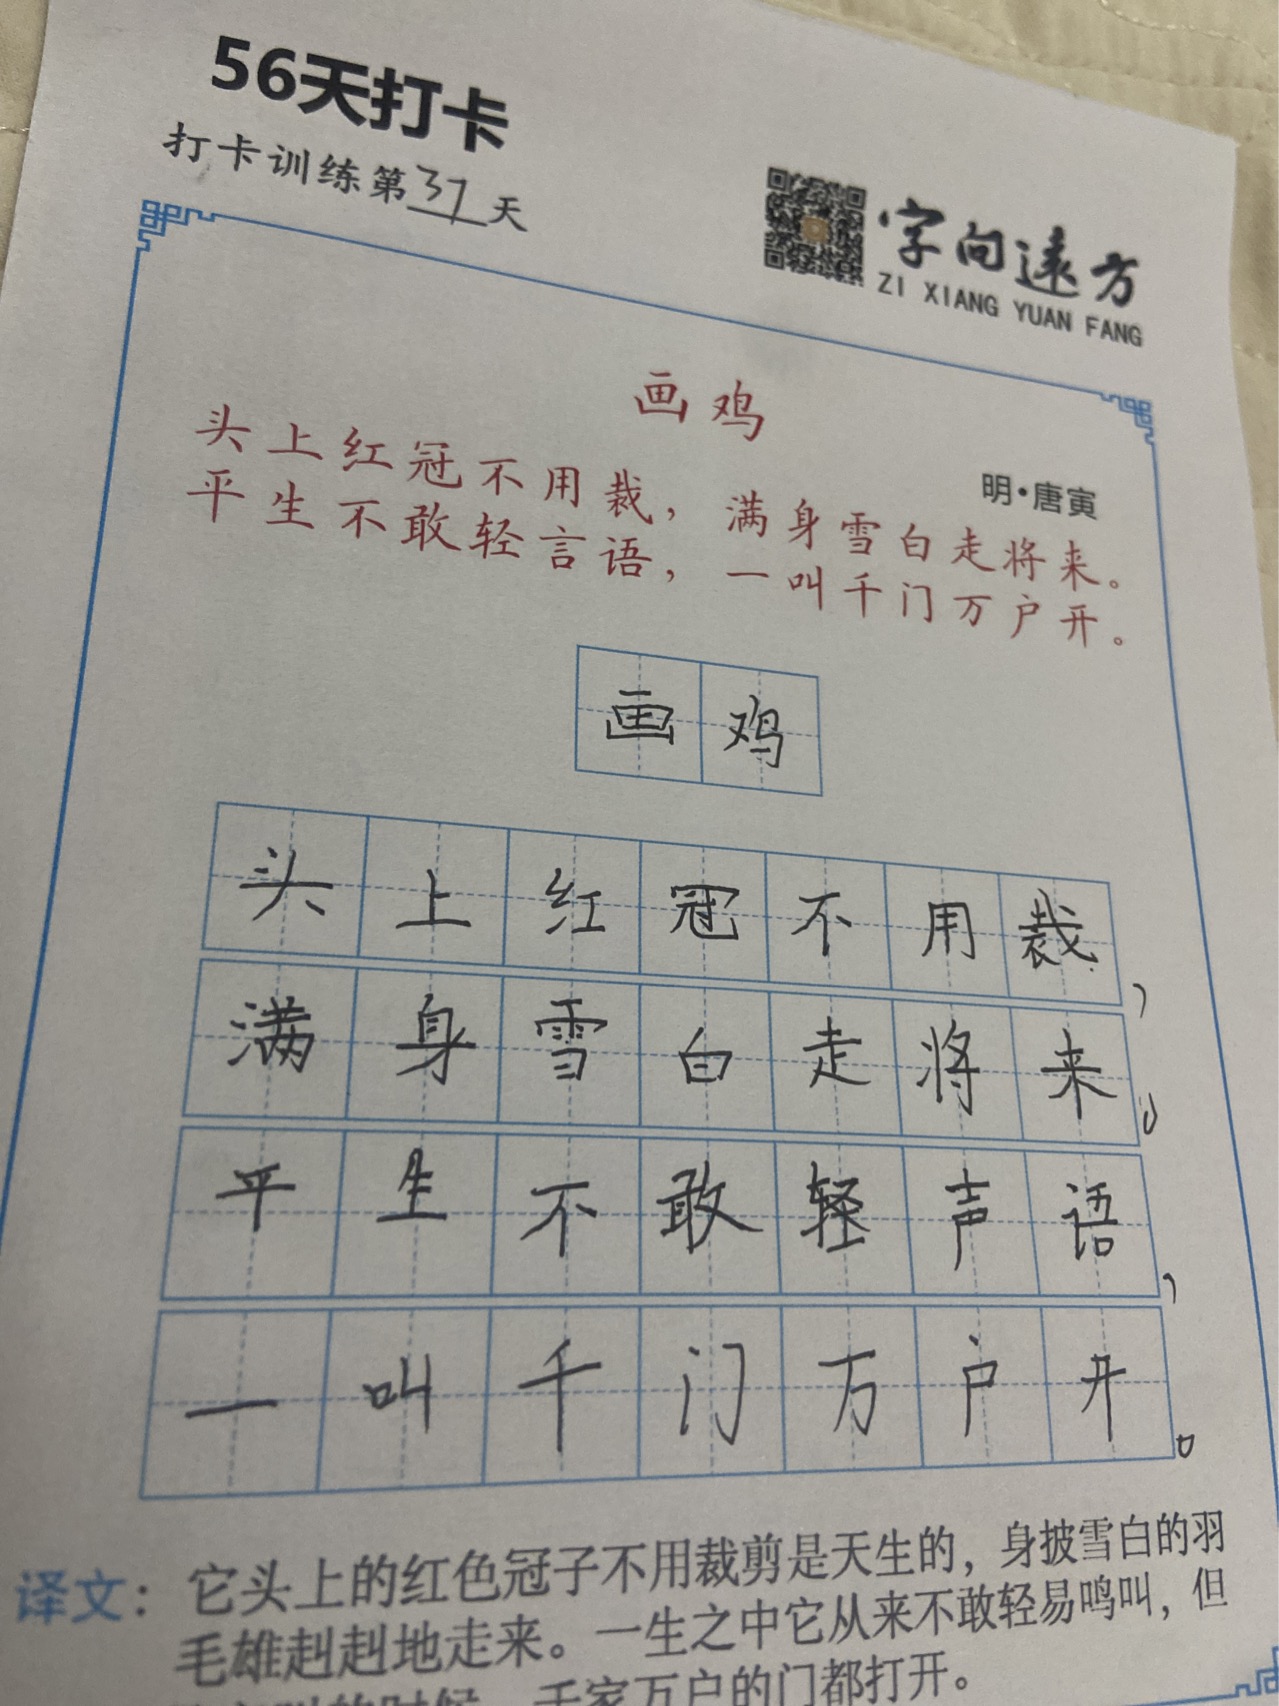 56天打卡
打卡训练第37天
字向遠方
ZI XIANG YUAN FANG
画鸡
明·唐寅
头上红冠不用裁，满身雪白走将来。
平生不敢轻言语，一叫千门万户开。
画鸡
头上红冠不用裁，
满身雪白走将来。
平生不敢轻声语，
一叫千门万户开。
译文：它头上的红色冠子不用裁剪是天生的，身披雪白的羽
毛雄赳赳地走来。一生之中它从来不敢轻易鸣叫，但
的时候，千家万户的门都打开。